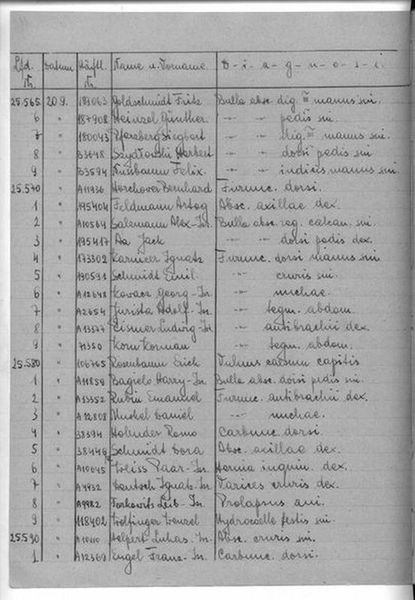 Lfd. Nr. Datum Häftl. Nr. Name u. Vorname. D-i-a-g-n-o-s-e
25.565 20.9. Goldschmidt Fritz Bulla absc. dig. manus sin.
6 " 187908 Heinzel Günther " " pedis sin.
7 " 180043 Pfersberg Siegbert " " dig. manus sin.
8 " B3648 Szydlowski Herbert " " dorsi pedis sin.
9 " B3594 Nussbaum Felix. " " indicis manus sin.
25.570 " A11936 Horchover Bernhard Furunc. dorsi.
1 " 195404 Feldmann Absc. axillae dex.
2 " A10564 Salemann Bulla absc. reg. calcan. sin.
3 " 195417 Aa Jack " " dorsi pedis dex.
4 " 173302 Karnicer Ignatz Furunc. dorsi manus sin.
5 " 190591 Schmidt Emil " cruris sin.
6 " A12648 Kovacs Georg-Isr. " nuchae.
7 " A2654 Jurista Adolf-Isr. " tegm. abdom.
8 " A13577 Eisner Ludwig-Isr. " antibrachii dex.
9 " 71350 Korn Korman " tegm. abdom.
25.580 " 106765 Rosenbaum Erich Vulnus caesum capitis
1 " A11850 Bagielo Harry-Isr. Bulla absc. dorsi pedis sin.
2 " A53552 Rubin Emanuel Furunc. antibrachii dex.
3 " A12808 Daniel " nuchae.
4 " 38394 Holender Romo Carbunc. dorsi.
5 " 38446 Schmidt Absc. axillae dex.
6 " A10045 Weiss Isr. Hernia inguin. dex.
7 " A4932 Deutsch Ignatz-Isr. Varices cruris dex.
8 " A9982 Leib-Isr. Prolapsus ani.
9 " 118402 Wolfinger Wenzel Hydrocoelle testis sin.
25.590 " A10110 Halpert Lukas-Isr. Absc. cruris sin.
1 " A12369 Engel Franz-Isr. Carbunc. dorsi.